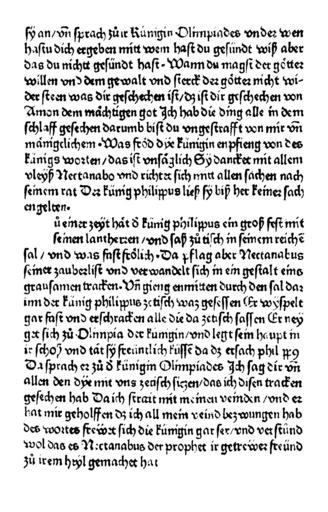 sy an/vn̄ sprach zů ir Künigin Olimpiades vnder wen
hastu dich ergeben mitt wem hast du gesündt wiß aber
das du nicht gesündt hast · Wann du magst der götter
willen vnd dem gewalt vnd sterck der götter nicht wi-
dersteen was dir geschechen ist/dz ist dir geschechen von
Amon dem mächtigen got Jch hab die ding alle in dem
schlaff gesechen darumb bist du vngestrafft von mir vn̄
mänigklichem · Was frőd die künigin enpfieng von des
künigs worten/das ist vnsäglich Sy dancket mit allem
vleyß Nectanabo vnd richtet sich mitt allen sachen nach
seinem rat Der künig philippus ließ sy biß her keiner sach
engelten ·
ů einer zeyt hät d̄ künig philippus ein groß fest mit
seinen lantherren/vnd saß zů tisch in seinem reichē
sal/vnd was fast frőlich · Da pflag aber Nectanabus
seiner zauberlist vnd verwandelt sich in ein gestalt eins
grausamen tracken · Vn̄ gieng enmitten durch den sal dar
inn der künig philippus ze tisch waz gesessen Er wyspelt
gar fast vnd erschracken alle die da ze tisch sassen Er ney
get sich zů Olimpia der kunigin/vnd legt sein haupt in
ir schoß vnd tät sy freüntlich küssē da dz ersach philippꝰ
Da sprach er zů d̄ künigin Olimpiades Jch sag dir vn̄
allen den dye mit vns ze tisch siczen/das ich disen tracken
gesehen hab Da ich strait mit meinen veinden/vnd er
hat mir geholffen dz ich all mein veind bezwungen hab
des wortes frewet sich die künigin gar ser/vnd verstůnd
wol das es Nectanabus der prophet ir getrewer freünd
zů irem heyl gemachet hat